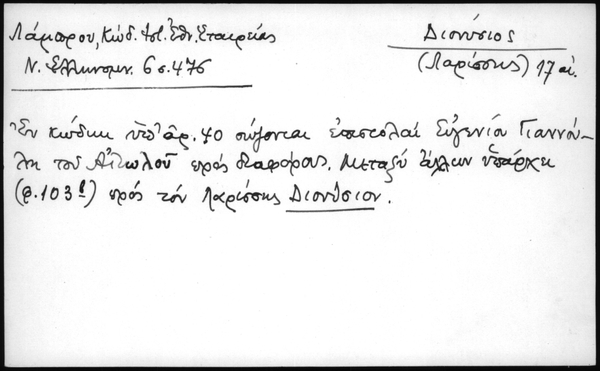 Λάμπρου, Κώδ. Ἱστ. Ἐθν. Ἑταιρείας
Ν. Ἑλληνομν. 6 σ. 476
Διονύσιος
(Λαρίσσης) 17 αἰ.
Ἐν κώδικι ὑπ' ἀρ. 40 σώζονται ἐπιστολαί Εὐγενίου Γιαννού-
λη τοῦ Αἰτωλοῦ πρός διαφόρους. Μεταξύ ἄλλων ὑπάρχει
(φ. 103β) πρός τόν Λαρίσσης Διονύσιον.